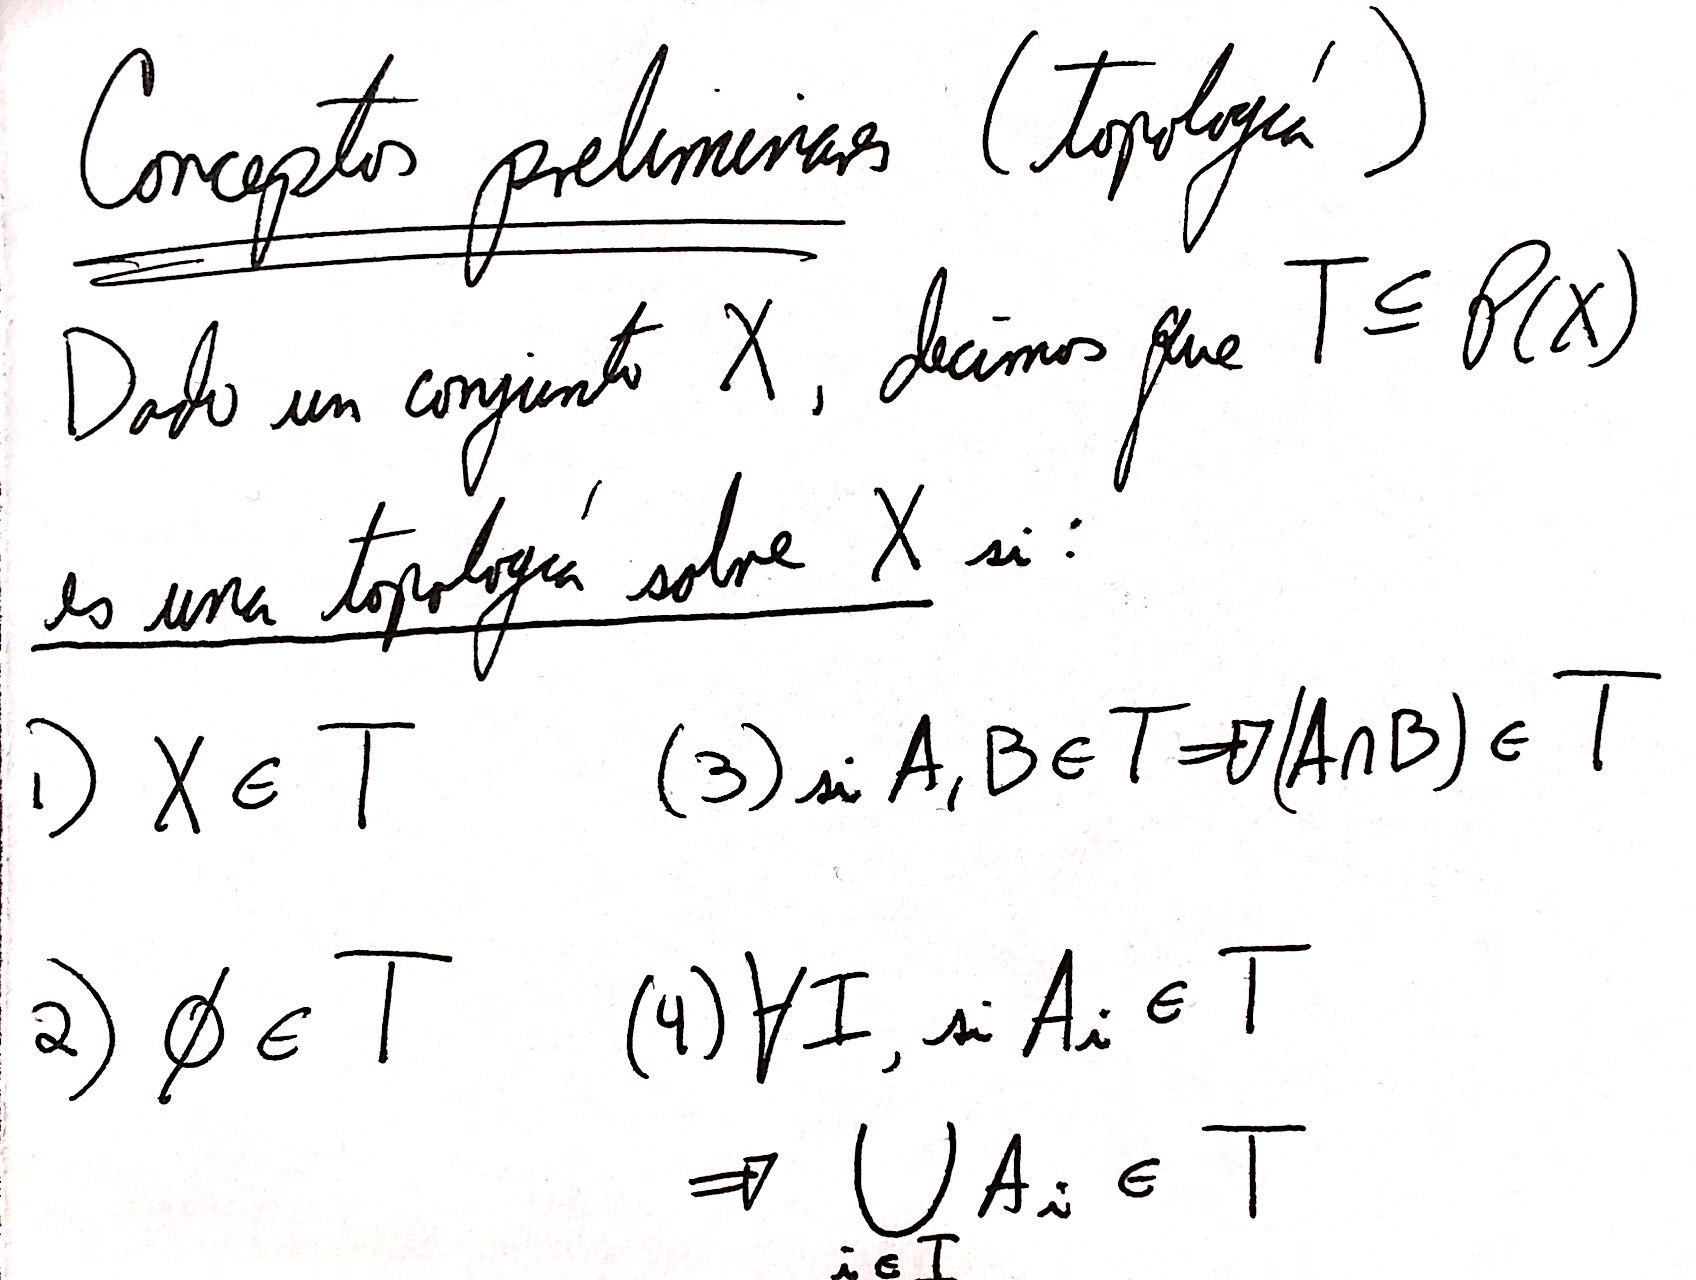 Conceptos preliminares (topología)
Dado un conjunto X, decimos que T ⊆ P(X)
es una topología sobre X si:
1) X ∈ T (3) si A, B ∈ T ⇒ (A ∩ B) ∈ T
2) ∅ ∈ T (4) ∀ I, si Aᵢ ∈ T
⇒ ⋃ Aᵢ ∈ T
i ∈ I